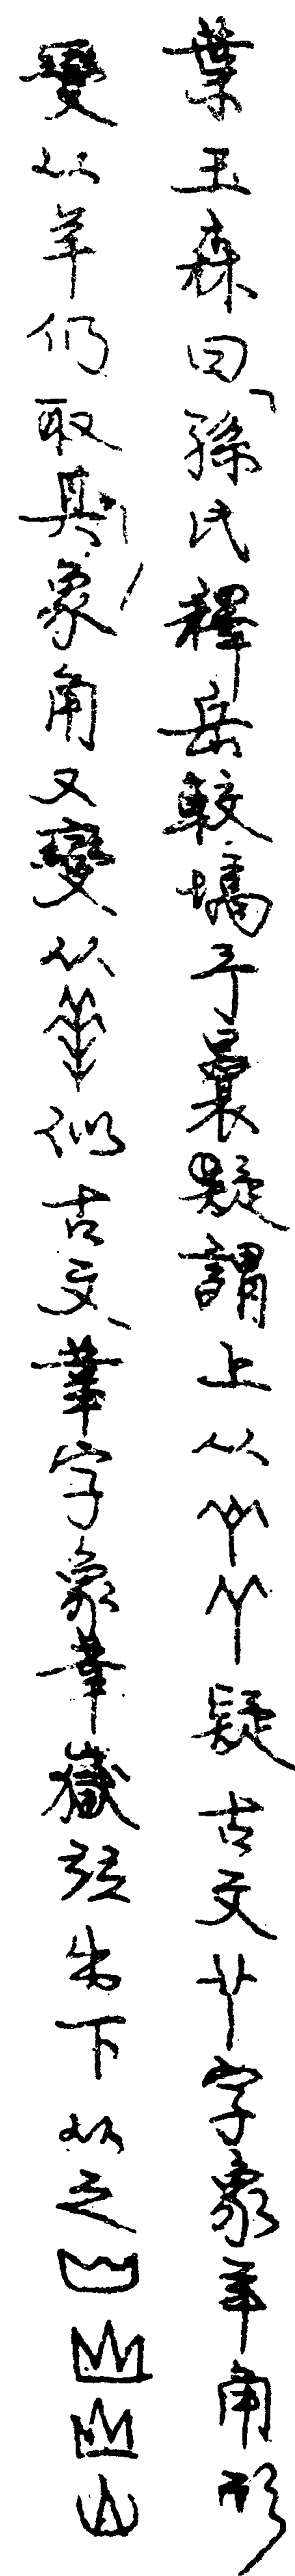 葉玉森曰「孫氏釋岳較塙予曩疑謂上从疑古文𦫳字象羊角形
變从羊仍取其象角又變从似古文華字象華嶽竝出下从之